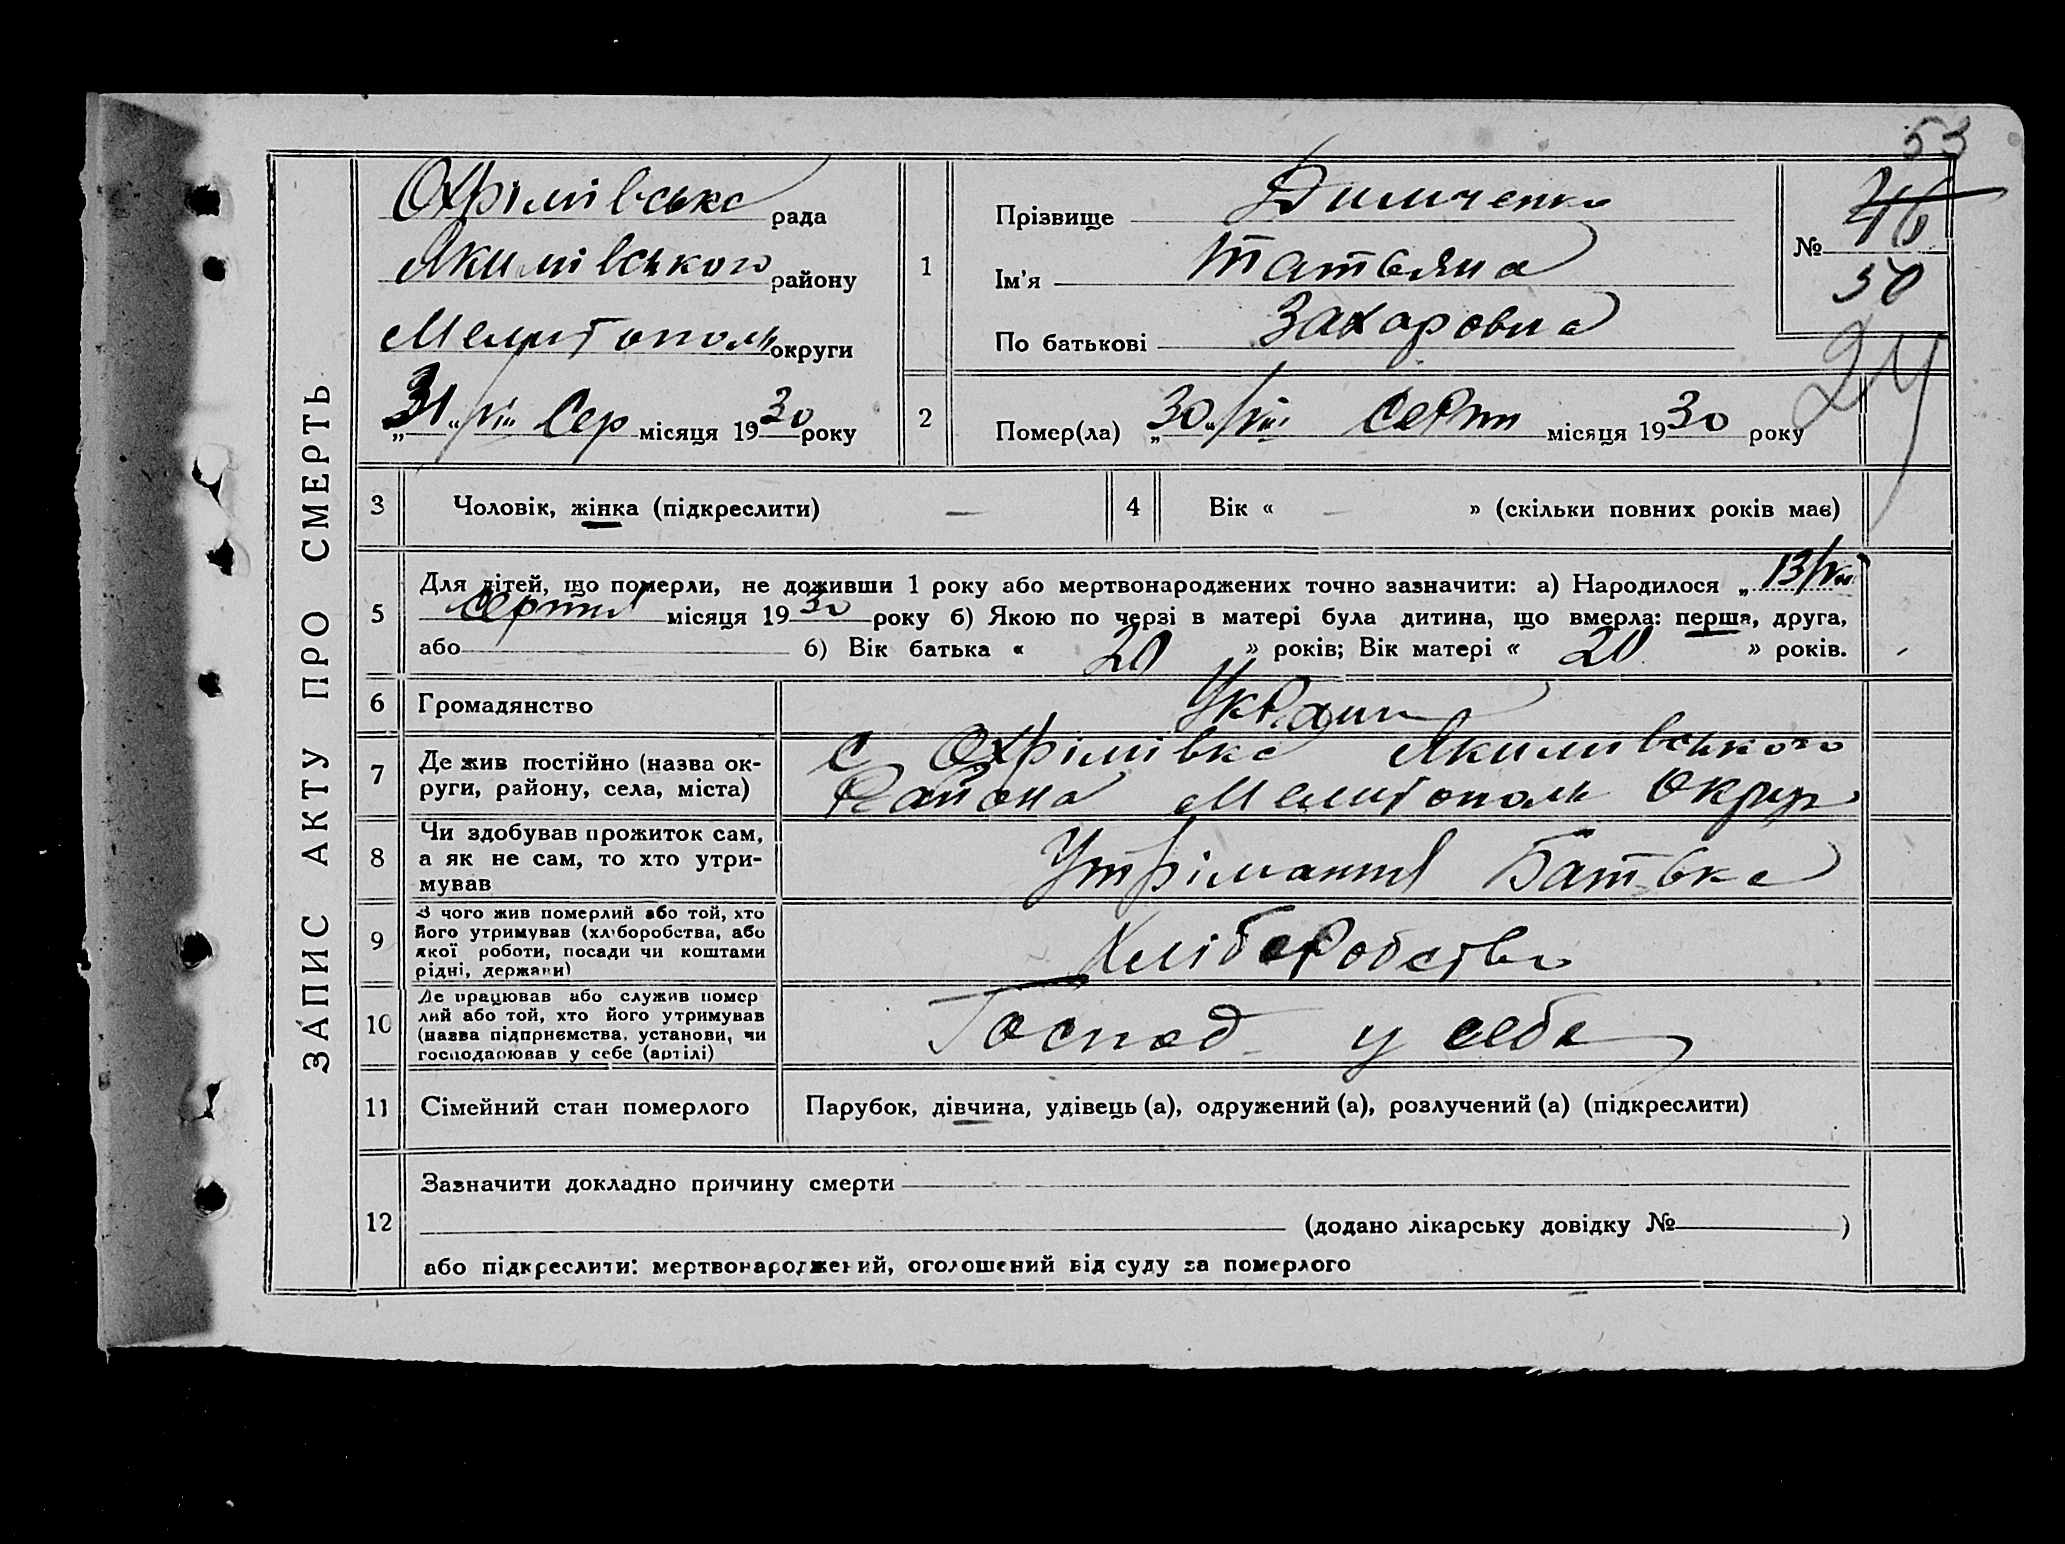 53
ЗАПИС АКТУ ПРО СМЕРТЬ
Охрімівська рада
Якимівського району
Мелитополь округи
„31“ VIII Сер місяця 1930 року
1
Прізвище Димченко
Ім'я Татьяна
По батькові Захаровна
№ 46
50
24
2
Помер(ла) „30“ VIII Серпн місяця 1930 року
3
Чоловік, жінка (підкреслити) —
4
Вік « — » (скільки повних років має)
5
Для дітей, що померли, не доживши 1 року або мертвонароджених точно зазначити: а) Народилося „13/VIII
серпня місяця 1930 року б) Якою по черзі в матері була дитина, що вмерла: перша, друга,
або б) Вік батька « 20 » років; Вік матері « 20 » років.
6
Громадянство Украин
7
Де жив постійно (назва ок-
руги, району, села, міста)
С Охрімівка Якимівського
Района Мелитополь Округ
8
Чи здобував прожиток сам,
а як не сам, то хто утри-
мував
Утрімання Батька
9
З чого жив померлий або той, хто
його утримував (хліборобства, або
якої роботи, посади чи коштами
рідні, держави)
Хліборобство
10
Де працював або служив помер
лий або той, хто його утримував
(назва підприємства, установи, чи
господарював у себе (артілі)
Господ у себе
11
Сімейний стан померлого
Парубок, дівчина, удівець (а), одружений (а), розлучений (а) (підкреслити)
12
Зазначити докладно причину смерти
(додано лікарську довідку № )
або підкреслити: мертвонароджений, оголошений від суду за померлого